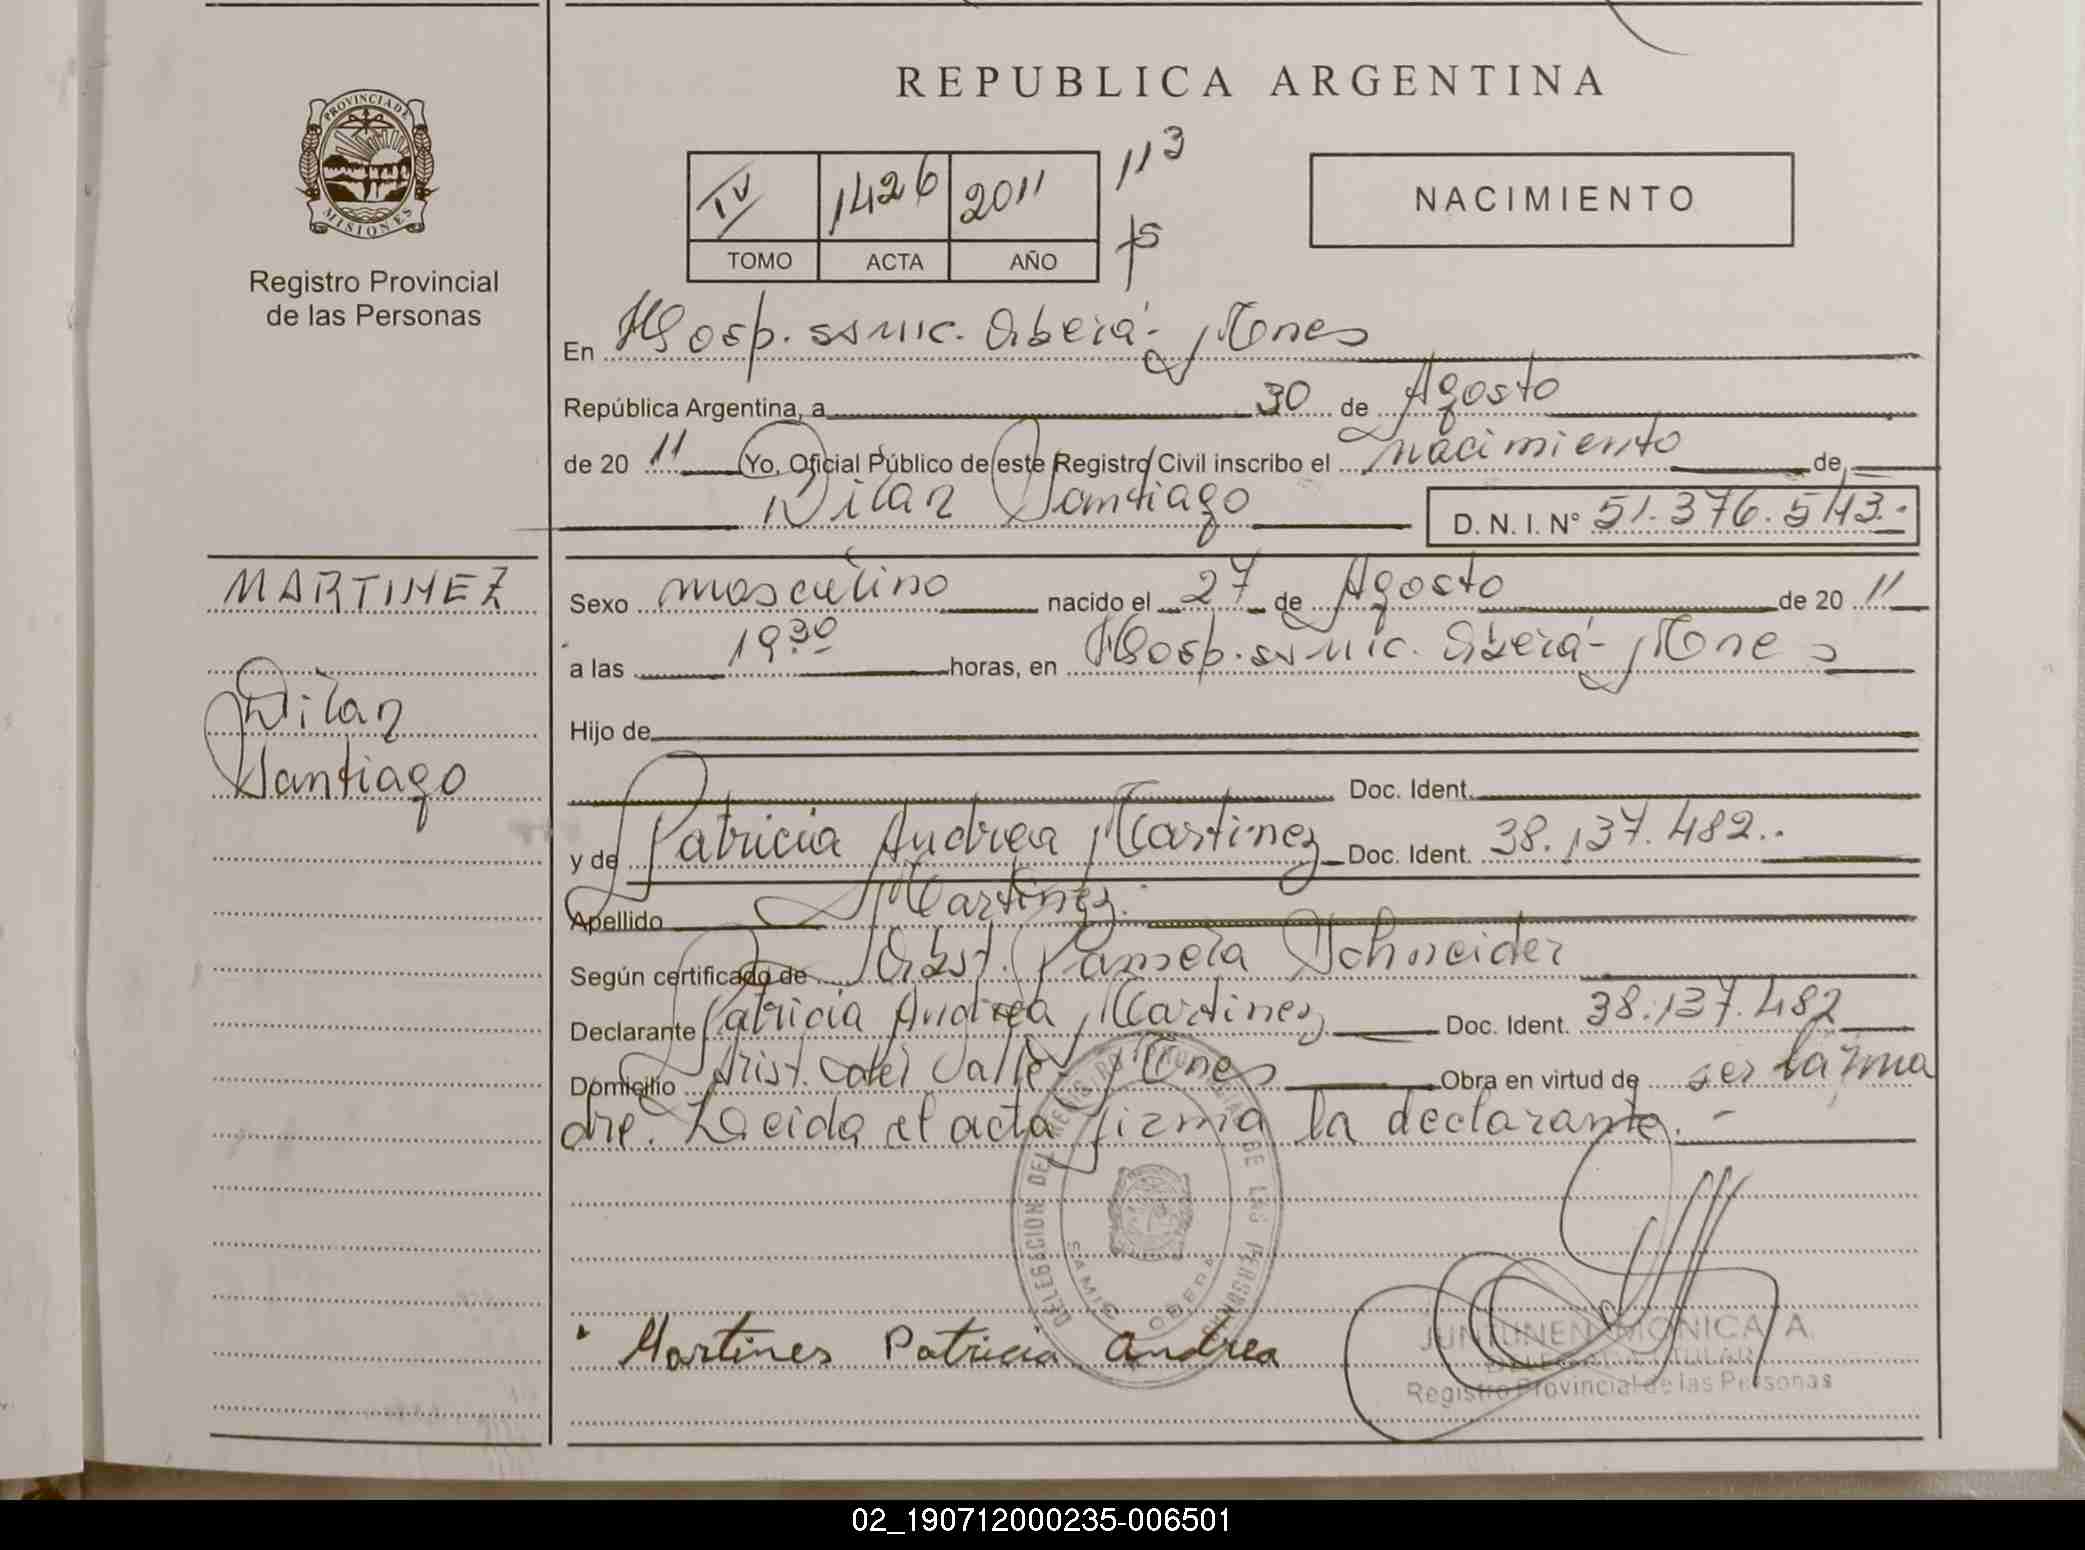 REPUBLICA ARGENTINA
PROVINCIA DE
MISIONES
Registro Provincial
de las Personas
IV 1426 2011 113
TOMO ACTA AÑO fs
NACIMIENTO
En Hosp. ssmic. Oberá- Mnes
República Argentina, a 30 de Agosto
de 20 11 Yo, Oficial Público de este Registro Civil inscribo el nacimiento de
Dilan Santiago D. N. I. Nº 51.376.543.-
MARTINEZ
Dilan
Santiago
Sexo masculino nacido el 27 de Agosto de 20 11
a las 19:30 horas, en Hosp. ssmic. Oberá- Mnes
Hijo de
Doc. Ident.
y de Patricia Andrea Martinez Doc. Ident. 38.137.482.-
Apellido Martinez.
Según certificado de Obst. Pamela Schneider
Declarante Patricia Andrea Martinez Doc. Ident. 38.137.482
Domicilio Arist. del Valle Mnes Obra en virtud de ser la ma
dre. Leida el acta firma la declarante. -
DELEGACION DEL REGISTRO PROVINCIAL DE LAS PERSONAS
SAMIC OBERA
Martines Patricia Andrea
JUNTUNEN MONICA A.
DELEGADA TITULAR
Registro Provincial de las Personas
02_190712000235-006501